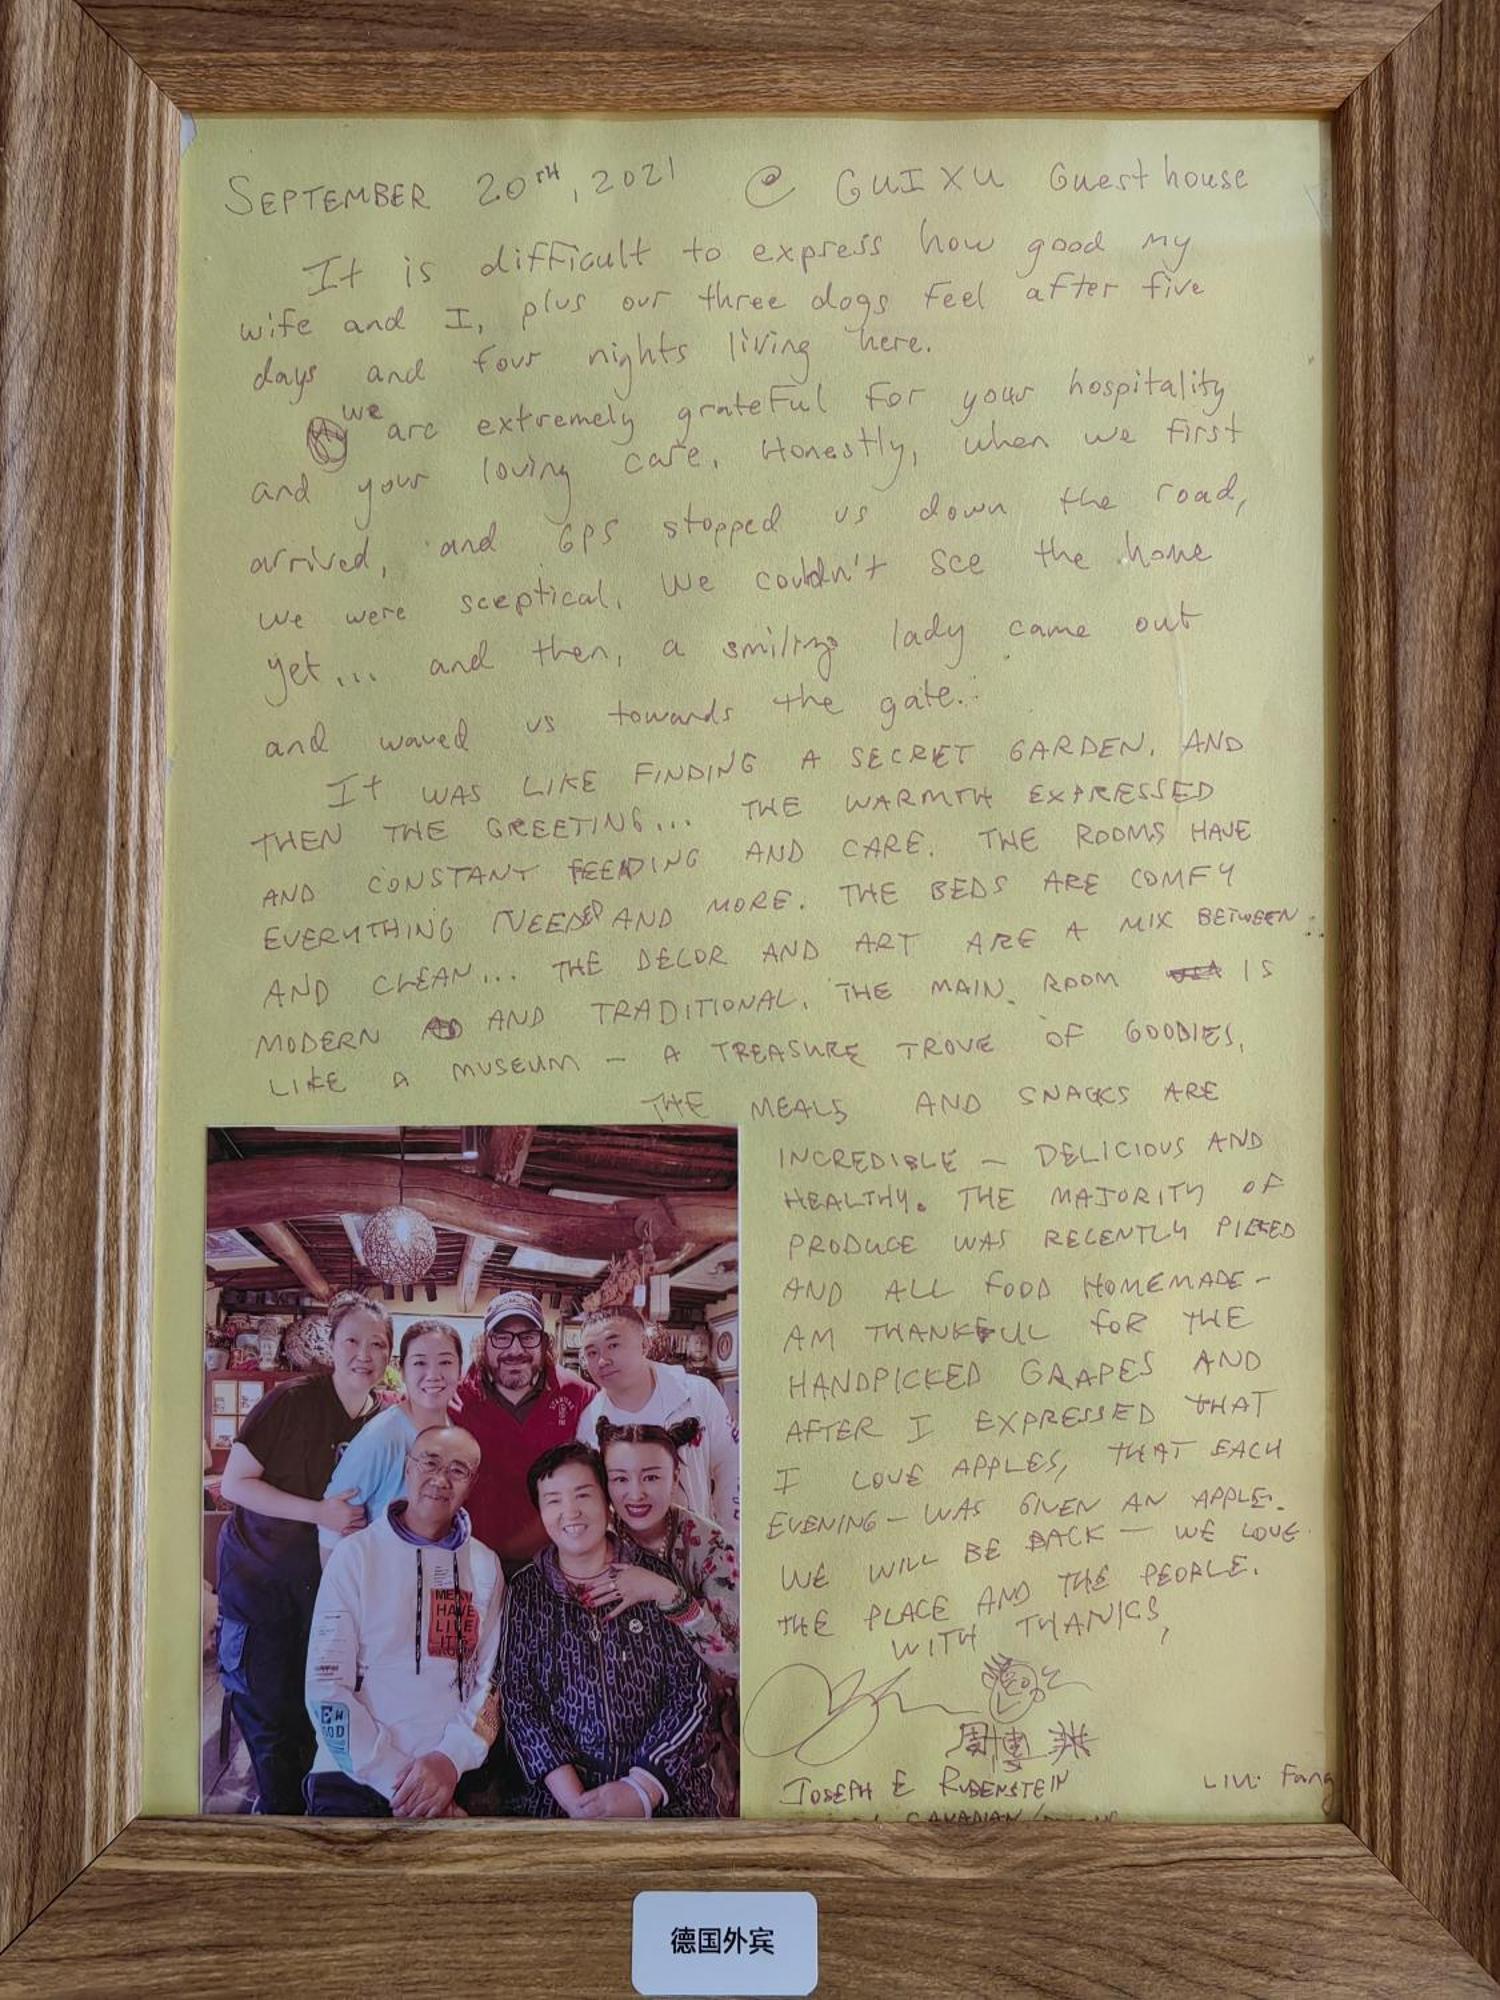 SEPTEMBER 20TH, 2021 @ GUIXU Guesthouse
It is difficult to express how good my
wife and I, plus our three dogs feel after five
days and four nights living here.
we are extremely grateful for your hospitality
and your loving care. Honestly, when we first
arrived, and GPS stopped us down the road,
we were sceptical. We couldn't see the home
yet... and then, a smiling lady came out
and waved us towards the gate..
It WAS LIKE FINDING A SECRET GARDEN. AND
THEN THE GREETING... THE WARMTH EXPRESSED
AND CONSTANT FEEDING AND CARE. THE ROOMS HAVE
EVERYTHING NEEDED AND MORE. THE BEDS ARE COMFY
AND CLEAN... THE DECOR AND ART ARE A MIX BETWEEN
MODERN AND TRADITIONAL. THE MAIN ROOM IS
LIKE A MUSEUM - A TREASURE TROVE OF GOODIES.
THE MEALS AND SNACKS ARE
INCREDIBLE - DELICIOUS AND
HEALTHY. THE MAJORITY OF
PRODUCE WAS RECENTLY PICKED
AND ALL FOOD HOMEMADE -
AM THANKFUL FOR THE
HANDPICKED GRAPES AND
AFTER I EXPRESSED THAT
I LOVE APPLES, THAT EACH
EVENING - WAS GIVEN AN APPLE.
WE WILL BE BACK - WE LOVE
THE PLACE AND THE PEOPLE.
WITH THANKS,
周博
JOSEPH E RUBENSTEIN
Fang
CANADIAN
ME
HAVE
LI E
IT
德国外宾